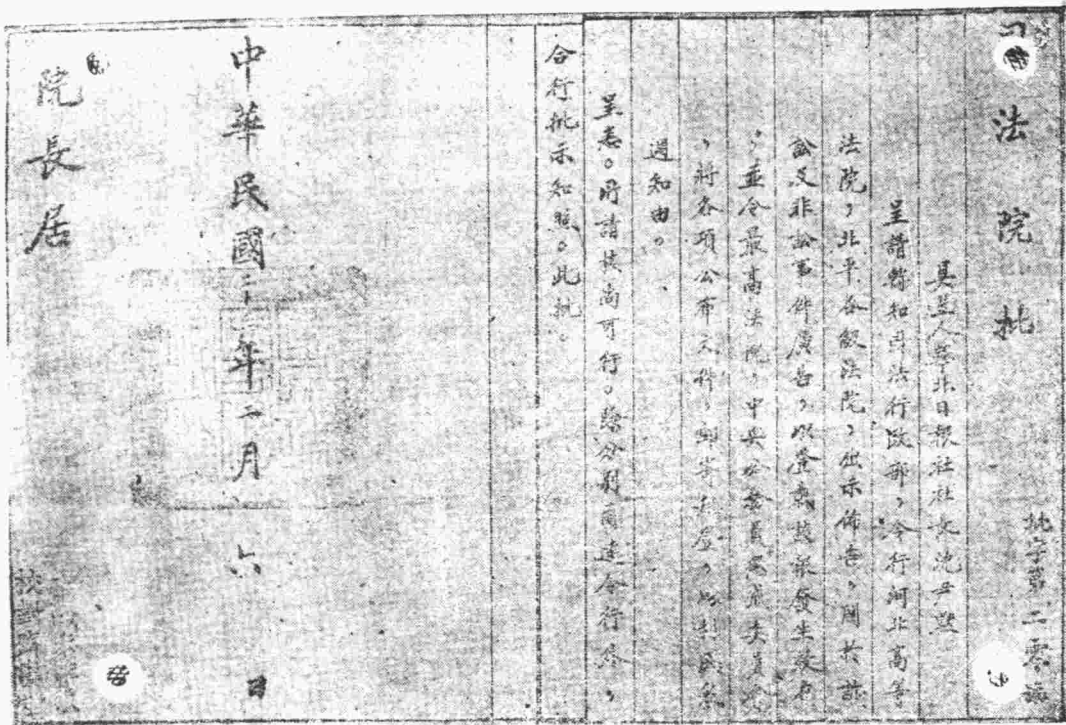 法院批
批字第二零
具呈人華北日報社社長沈尹默
呈請飭知司法行政部,令行河北高等
法院,北平各級法院,出示佈告,關於訴
訟及非訟事件廣告,以登載該報發生效力
,並令最高法院,中央公務員懲戒委員會
,將各項公布文件,郵寄刊登,以利民眾
週知由。
呈悉。所請尚可行。分別令行外,
合行批示知照。此批。
中華民國二十二年二月六日
院長居